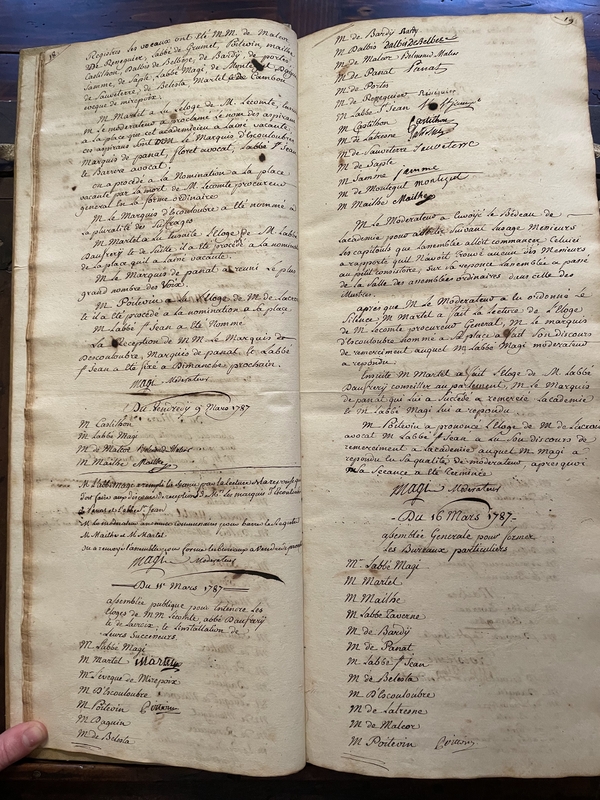 18.
Registres les vocaux ont été M.M. de Malcor
de Reneguier, Labbé de Poitevin, mailhe
Castilhon, Dalbis de Belbèze, de Bardy, de portes
Jamme, de Sapte, Labbé Magi, de Montegut
de Sauveterre, de Belesta Martel Le de Cambon
eveque de mirepoix.
M. Martel a lu l'eloge de M. Lecomte,
M. le moderateur a proclamé le nom des aspirans
a la place que cet academicien a laissé vacante.
ces aspirans sont M. le Marquis d'escouloubre
Marquis de panat, floret avocat, Labbé St Jean
et Barere avocat.
on a procédé a la Nomination a la place
vacante par la mort de M. Lecomte procureur
general en la forme ordinaire
M. le Marquis D'escouloubre a eté nommé a
la pluralité des suffrages
M. Martel a lu ensuite l'Eloge de M. Labbé
Daufrery et de suitte il a eté procédé a la nomination
de la place qu'il a laissé vacante.
M. le Marquis de panat a reuni le plus
grand nombre des voix.
M. Poitevin a lu l'Eloge de M. de Lacroix
et il a eté procédé a la nomination a la place
M. Labbé St Jean a eté Nommé
La Reception de MM. Le Marquis de
Descouloubre, Marquis de panat, et Labbé
St Jean a eté fixé a Dimanche prochain.
Magi Moderateur
Du Vendredy 9 Mars 1787
M. Castilhon
M. Labbé Magi
M. de Malcor
M. Mailhe Mailhe
M. L'abbé magi a rempli la seance par la lecture des reponses qu'il
doit faire aux discours de reception de MM. les marquis D'Escouloubre
de Panat et l'abbé St Jean
M. le moderateur a nommé commissaires pour
M. Mailhe et M. Martel.
on a renvoyé l'assemblée pour former les bureaux a vendredi prochain
Magi Moderateur
Du 11e Mars 1787
assemblée publique pour entendre les
eloges de MM. Lecomte, abbé Daufrery
et de Lacroix, et l'installation de
leurs Successeurs.
M. Labbé Magi
M. Martel Martel
Mr. Leveque de Mirepoix
M. D'Escouloubre
M. Poitevin Poitevin
M. Daguin
M. de Belesta
19.
M. de Bardy Bardy
M. Dalbis Dalbis de Belbèze
M. de Malcor
M. de Panat Panat
M. de Portes
M. de Reneguier
M. Labbé St Jean
M. Castilhon Castilhon
M. de Latresne
M. de Sauveterre Sauveterre
M. de Sapte
M. Jamme Jamme
M. de Montegut montegut
M. Mailhe Mailhe
M. Le Moderateur a envoyé le Bedeau de
Lacademie pour avertir suivant l'usage Messieurs
Les capitouls que Lassemblée alloit commencer. Celuici
a rapporté quil N'avoit trouvé aucun des Messieurs
au petit consistoire, sur sa reponse Lassemblée a passé
de la Salle des assemblées ordinaires, dans celle des
Illustres.
après que M. Le Moderateur a eu ordonné le
Silence, M. Martel a fait la lecture de l'Eloge
de M. Lecomte procureur General, M. le marquis
d'Escouloubre nommé a sa place a fait son discours
de remerciment auquel M. Labbé Magi moderateur
a repondu.
Ensuite M. Martel a fait l'eloge de M. Labbé
Daufrery conseiller au parlement, M. Le Marquis
de panat qui lui a succédé a remercié Lacademie
et M. Labbé Magi lui a repondu
M. Poitevin a prononcé l'Eloge de M. de Lacroix
avocat M. Labbé St Jean a lu son discours de
remerciment a Lacademie auquel M. Magi a
repondu en sa qualité de moderateur, après quoi
la seance a eté terminée
Magi Moderateur
Du 16 Mars 1787
assemblée Generale pour former
Les Bureaux particuliers
Mr. Labbé Magi
M. Martel
M. Mailhe
M. Labbé Taverne
M. de Bardy
M. de Panat
M. Labbé St Jean
M. de Belesta
M. D'Escouloubre
M. de Latresne
M. de Malcor
M. Poitevin Poitevin